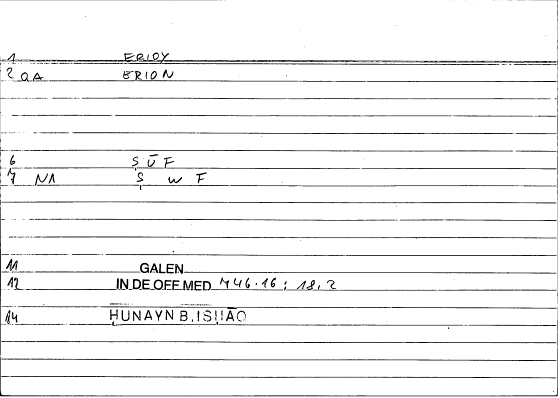 1 ERIOY
2 OA ERION
6 Ṣ Ū F
7 NA Ṣ W F
11 GALEN
12 IN DE OFF MED 746.16; 18.2
14 ḤUNAYN B. ISḤĀQ